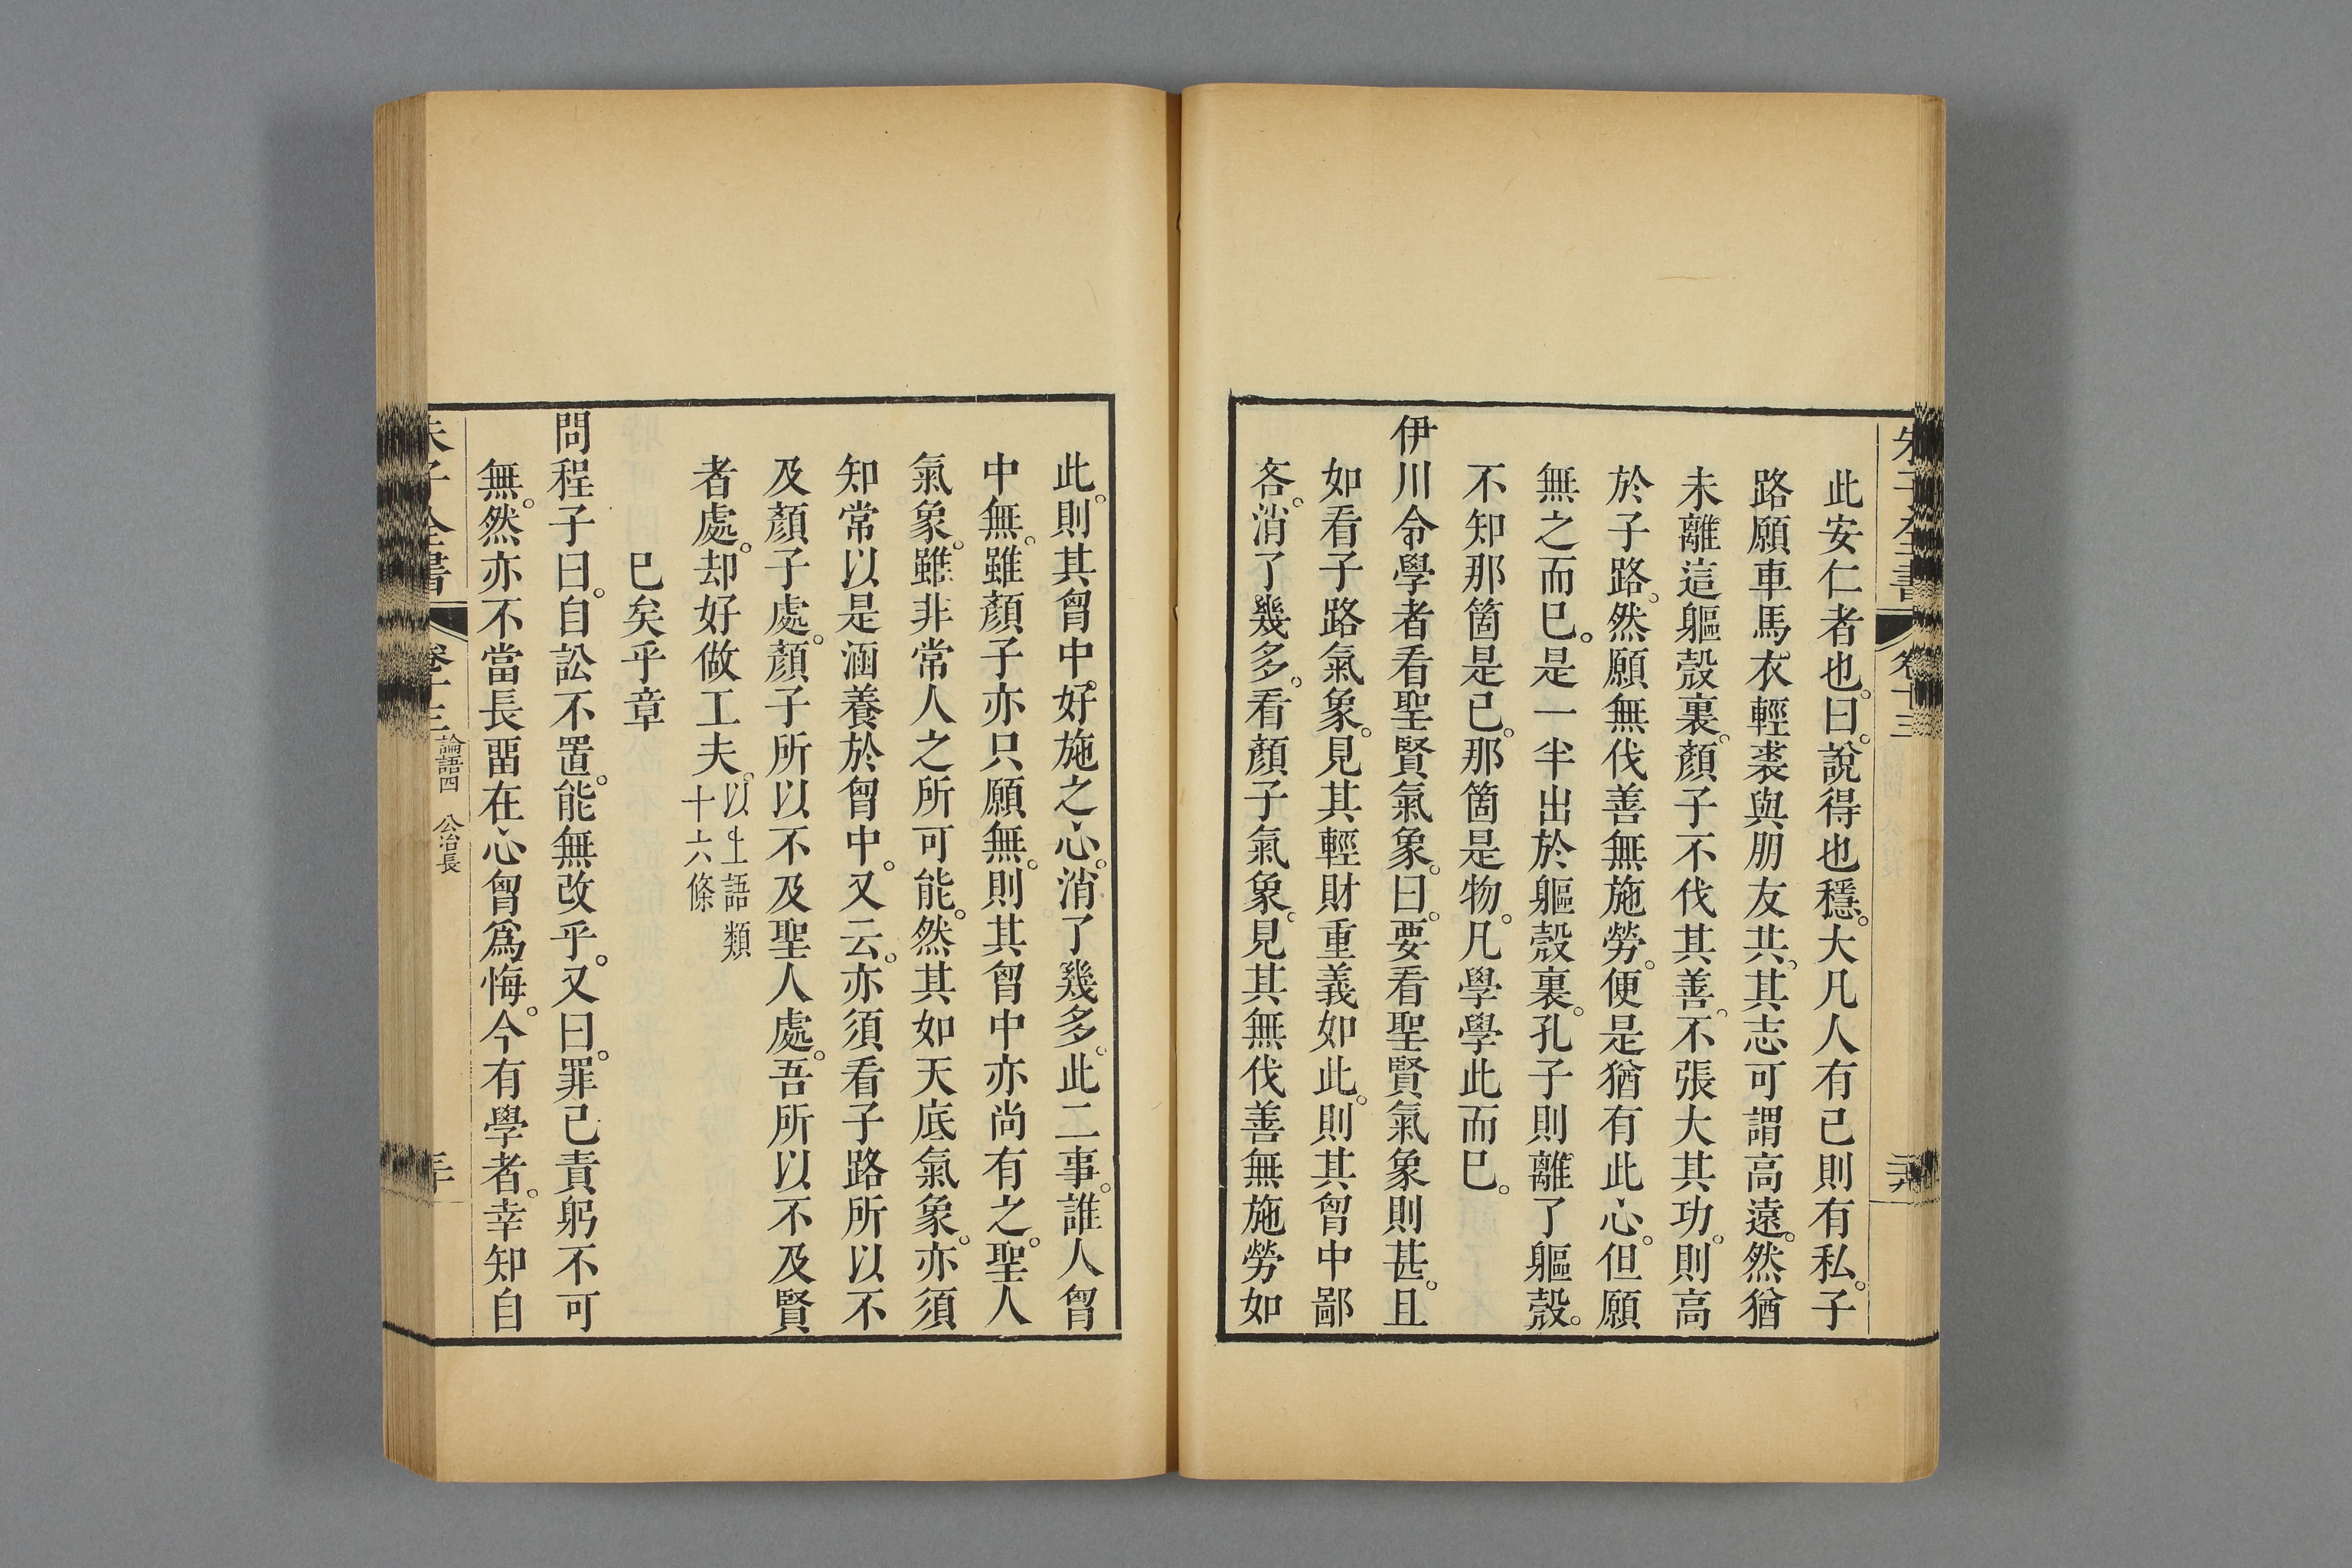 朱子全書　卷十三
此安仁者也。曰。說得也穩。大凡人有己則有私。子
路願車馬衣輕裘與朋友共。其志可謂高遠。然猶
未離這軀殼裏。顏子不伐其善。不張大其功。則高
於子路。然願無伐善無施勞。便是猶有此心。但願
無之而已。是一半出於軀殼裏。孔子則離了軀殼。
不知那箇是己。那箇是物。凡學學此而已。
伊川令學者看聖賢氣象。曰。要看聖賢氣象則甚。且
如看子路氣象。見其輕財重義如此。則其胷中鄙
吝。消了幾多。看顏子氣象。見其無伐善無施勞如
此。則其胷中。好施之心。消了幾多。此二事。誰人胷
中無。雖顏子亦只願無。則其胷中亦尚有之。聖人
氣象。雖非常人之所可能。然其如天底氣象。亦須
知常以是涵養於胷中。又云。亦須看子路所以不
及顏子處。顏子所以不及聖人處。吾所以不及賢
者處。却好做工夫。以上語類
十六條
已矣乎章
問程子曰。自訟不置。能無改乎。又曰。罪己責躬不可
無。然亦不當長畱在心胷爲悔。今有學者。幸知自
朱子全書　卷十三　論語四　公冶長　三十